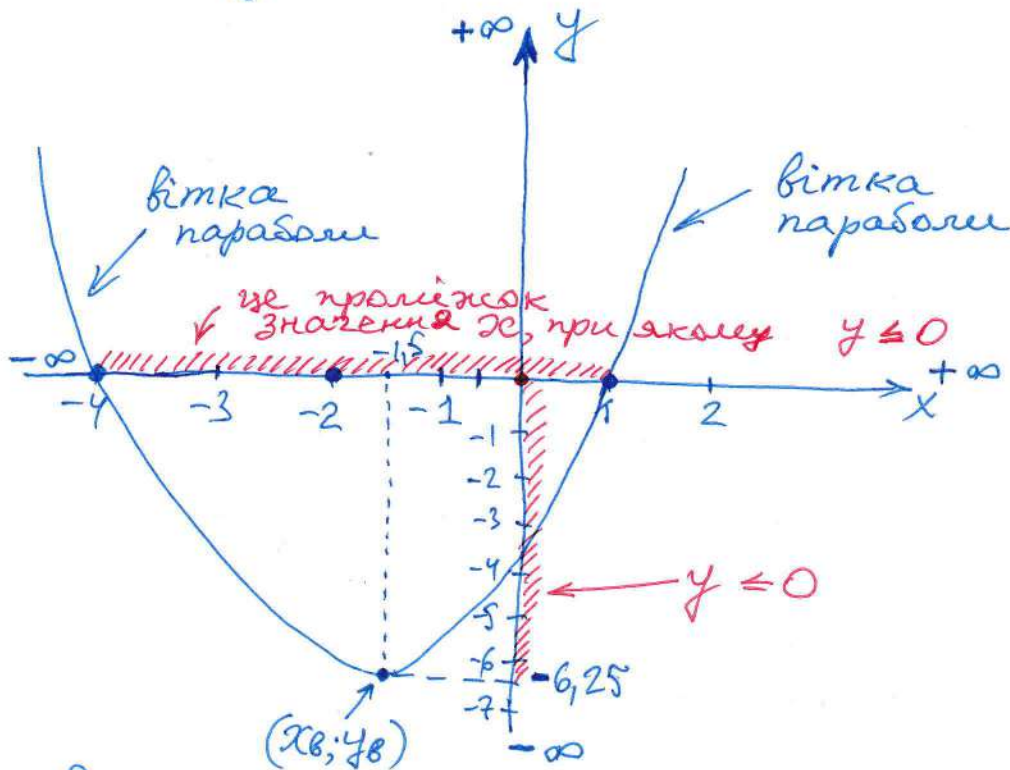 +∞ y
вітка
параболи
вітка
параболи
це проміжок
значення x, при якому y ≤ 0
-∞ -1,5 +∞
-4 -3 -2 -1 1 2 x
-1
-2
-3
-4
y ≤ 0
-5
-6
-6,25
-7
(xв; yв)
-∞